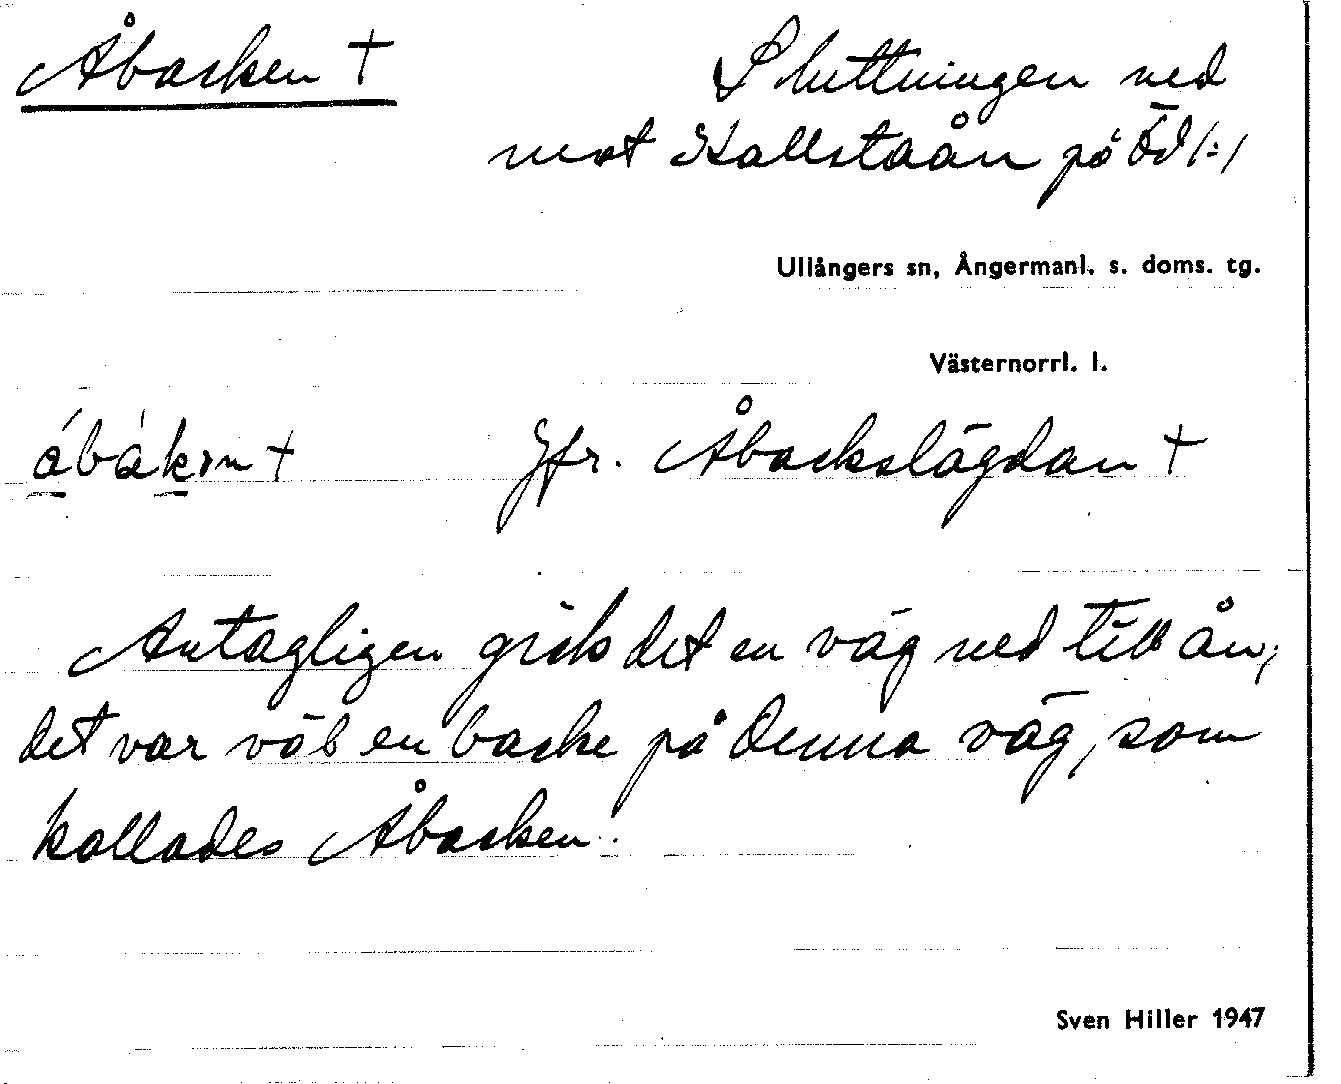 Åbacken †
Sluttningen ned
mot Kallstaån på Öd /:/
Ullångers sn, Ångermanl. s. doms. tg.
Västernorrl. l.
Jfr. Åbackslägdan †
Antagligen gick det en väg ned till ån,
det var väl en backe på denna väg, som
kallades Åbacken.
Sven Hiller 1947